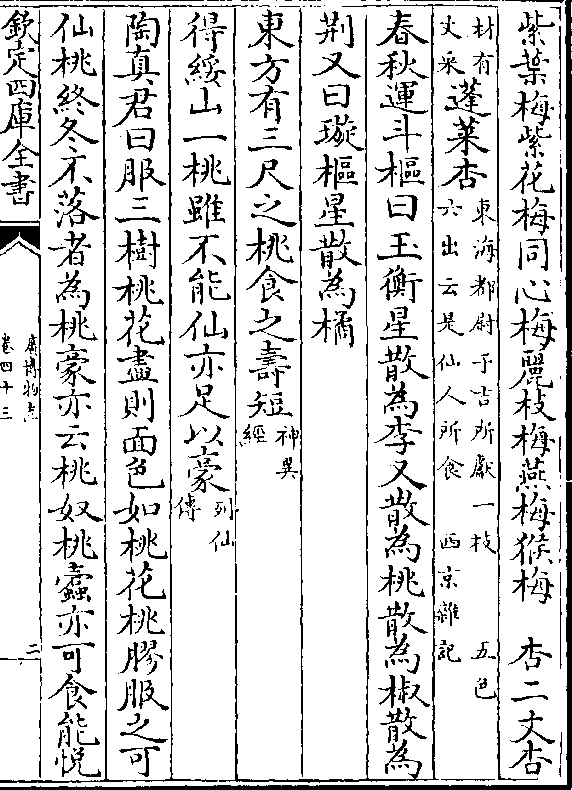 紫葉梅紫花梅同心梅麗枝梅燕梅猴梅　杏二文杏
材有文采蓬萊杏東海都尉于吉所獻一枝　五色六出云是仙人所食　西京雜記
春秋運斗樞曰玉衡星散為李又散為桃散為椒散為
荆又曰璇樞星散為橘
東方有三尺之桃食之壽短神異經
得綏山一桃雖不能仙亦足以豪列仙傳
陶真君曰服三樹桃花盡則面色如桃花桃膠服之可
仙桃終冬不落者為桃豪亦云桃奴桃蠧亦可食能悦
欽定四庫全書
廣博物志
卷四十三
二